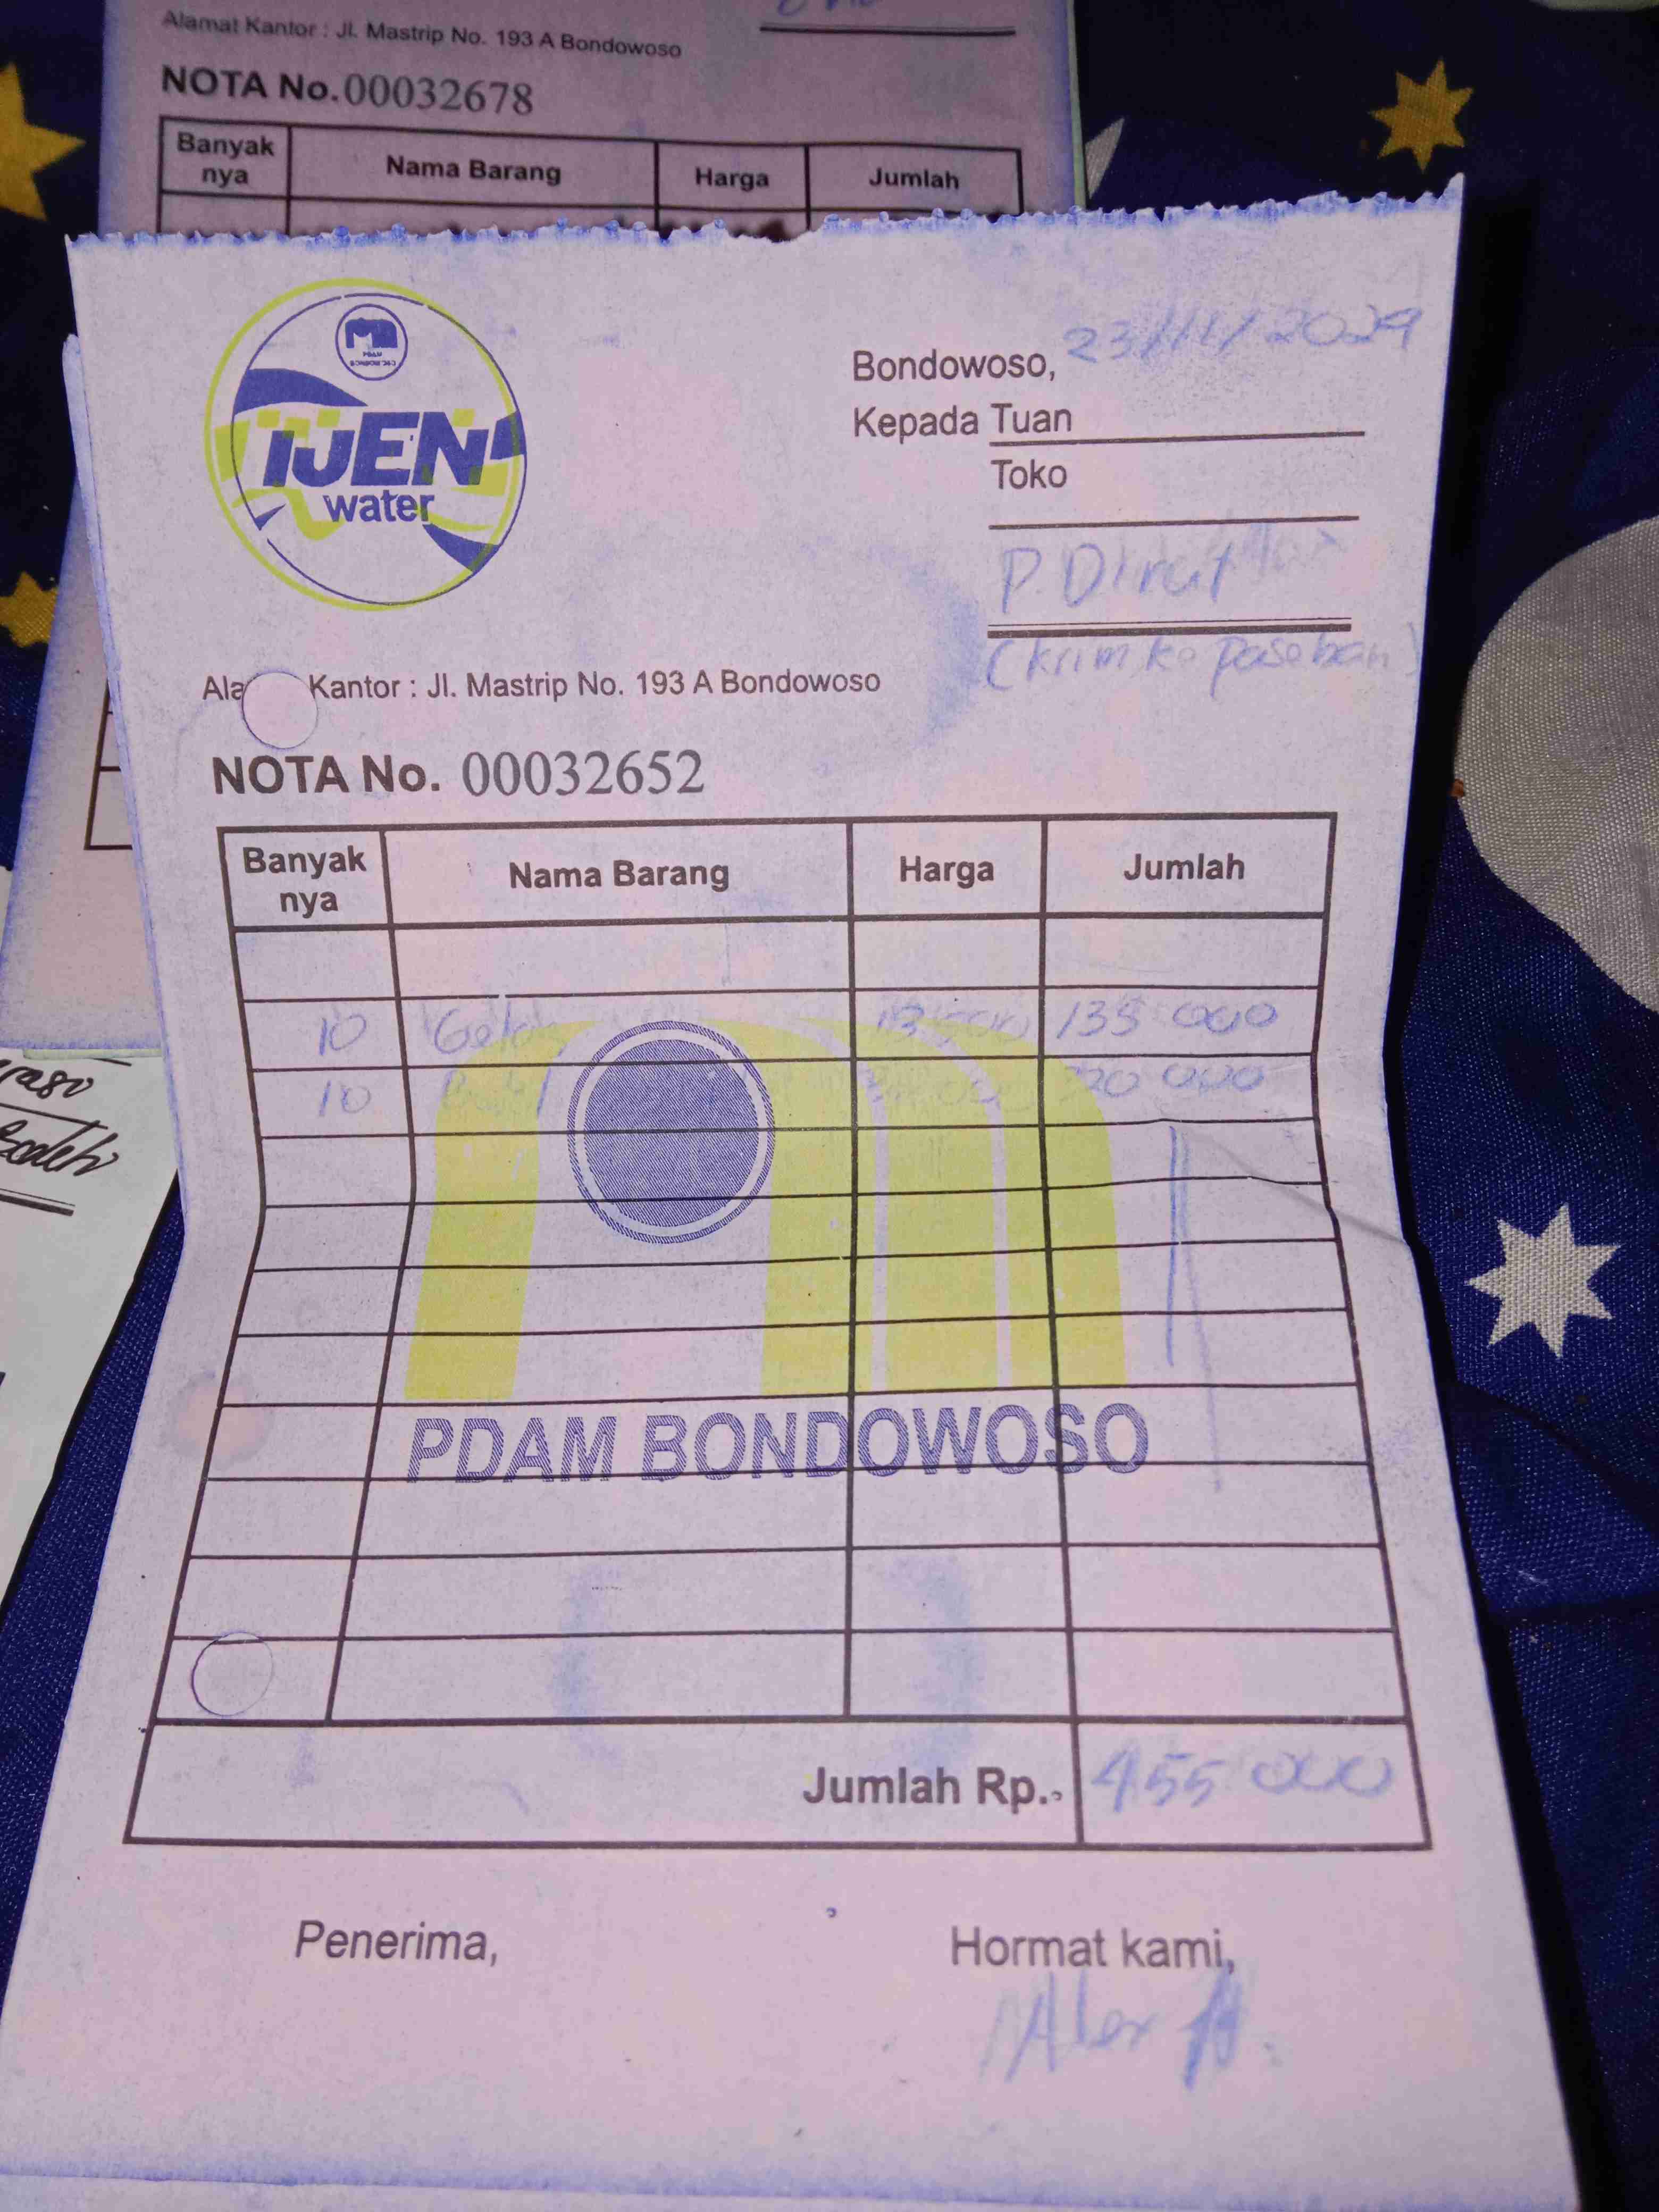 Alamat Kantor : Jl. Mastrip No. 193 A Bondowoso
NOTA No. 00032678
Banyak nya Nama Barang Harga Jumlah
PDAM
IJEN
water
Bondowoso, 23/11/2024
Kepada Tuan
Toko
P. Dirut
(Kirim ke Paseban)
Ala Kantor : Jl. Mastrip No. 193 A Bondowoso
NOTA No. 00032652
Banyak nya Nama Barang Harga Jumlah
10 Gelas 13.500 135 000
10 Botol 320 000
PDAM BONDOWOSO
Jumlah Rp. 455 000
Penerima, Hormat kami,
Alex